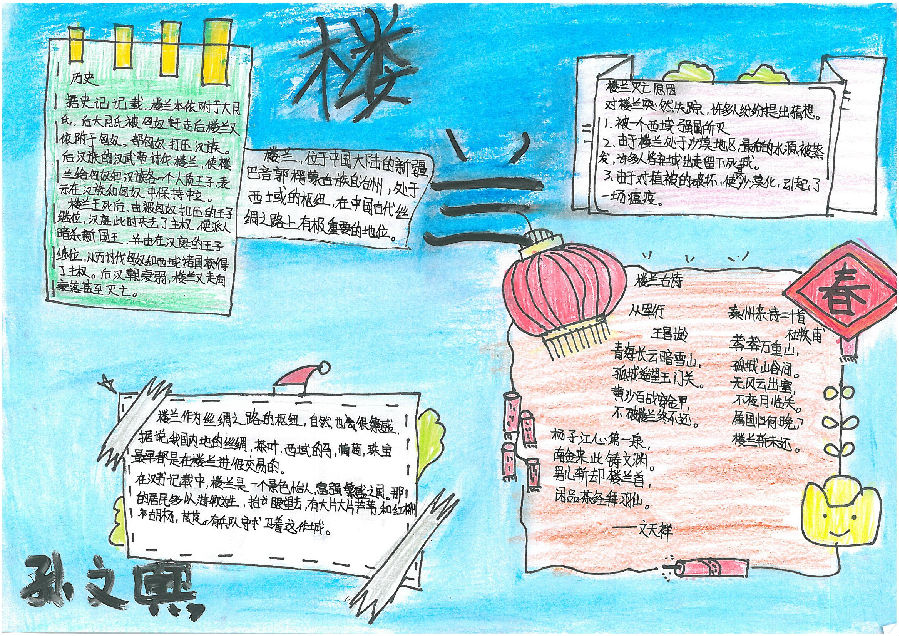 楼
兰
历史
据史记记载，楼兰本依附于大月
氏，后大月氏被匈奴赶走后楼兰又
依附于匈奴。都匈奴打压汉族。
后汉族的汉武帝讨伐楼兰，使楼
兰给匈奴和汉族各一个人质王子，表
示在汉族和匈奴中保持中立。
楼兰王死后，由被匈奴扣压的王子
继位，汉庭此时失去了主权，便派人
暗杀新国王，并由在汉庭的王子
继位，从而讨伐匈奴和西域诸国获得
了主权。后汉朝衰弱，楼兰又走向
衰落甚至灭亡。
楼兰，位于中国大陆的新疆
巴音郭楞蒙古族自治州，处于
西域的枢纽，在中国古代丝
绸之路上有极重要的地位。
楼兰灭亡原因
对楼兰突然失踪，许多人纷纷提出猜想。
1.被一个西域强国所灭
2.由于楼兰处于沙漠地区，最后的水源被紧
3.由于对植被的破坏，使沙漠化，引起了
一场瘟疫。
楼兰古诗
从军行
王昌龄
青海长云暗雪山，
孤城遥望玉门关。
黄沙百战穿金甲，
不破楼兰终不还。
秦州杂诗二十首
杜甫
莽莽万重山，
孤城山谷间。
无风云出塞，
不夜月临关。
属国归何晚？
楼兰斩未还。
扬子江心第一泉，
南金来此铸文渊。
男儿斩却楼兰首，
闲品茶经拜羽仙。
——文天祥
春
楼兰作为丝绸之路的枢纽，自然也富很繁盛，
据说，我国内地的丝绸，茶叶，西域的马，葡萄，珠宝
最早都是在楼兰进很交易的。
在汉书记载中，楼兰是一个景色怡人，富强繁盛之国。那
的居民多从游牧业，抬眼望去，有大片大片芦苇和红柳
和胡杨，
孙文熙